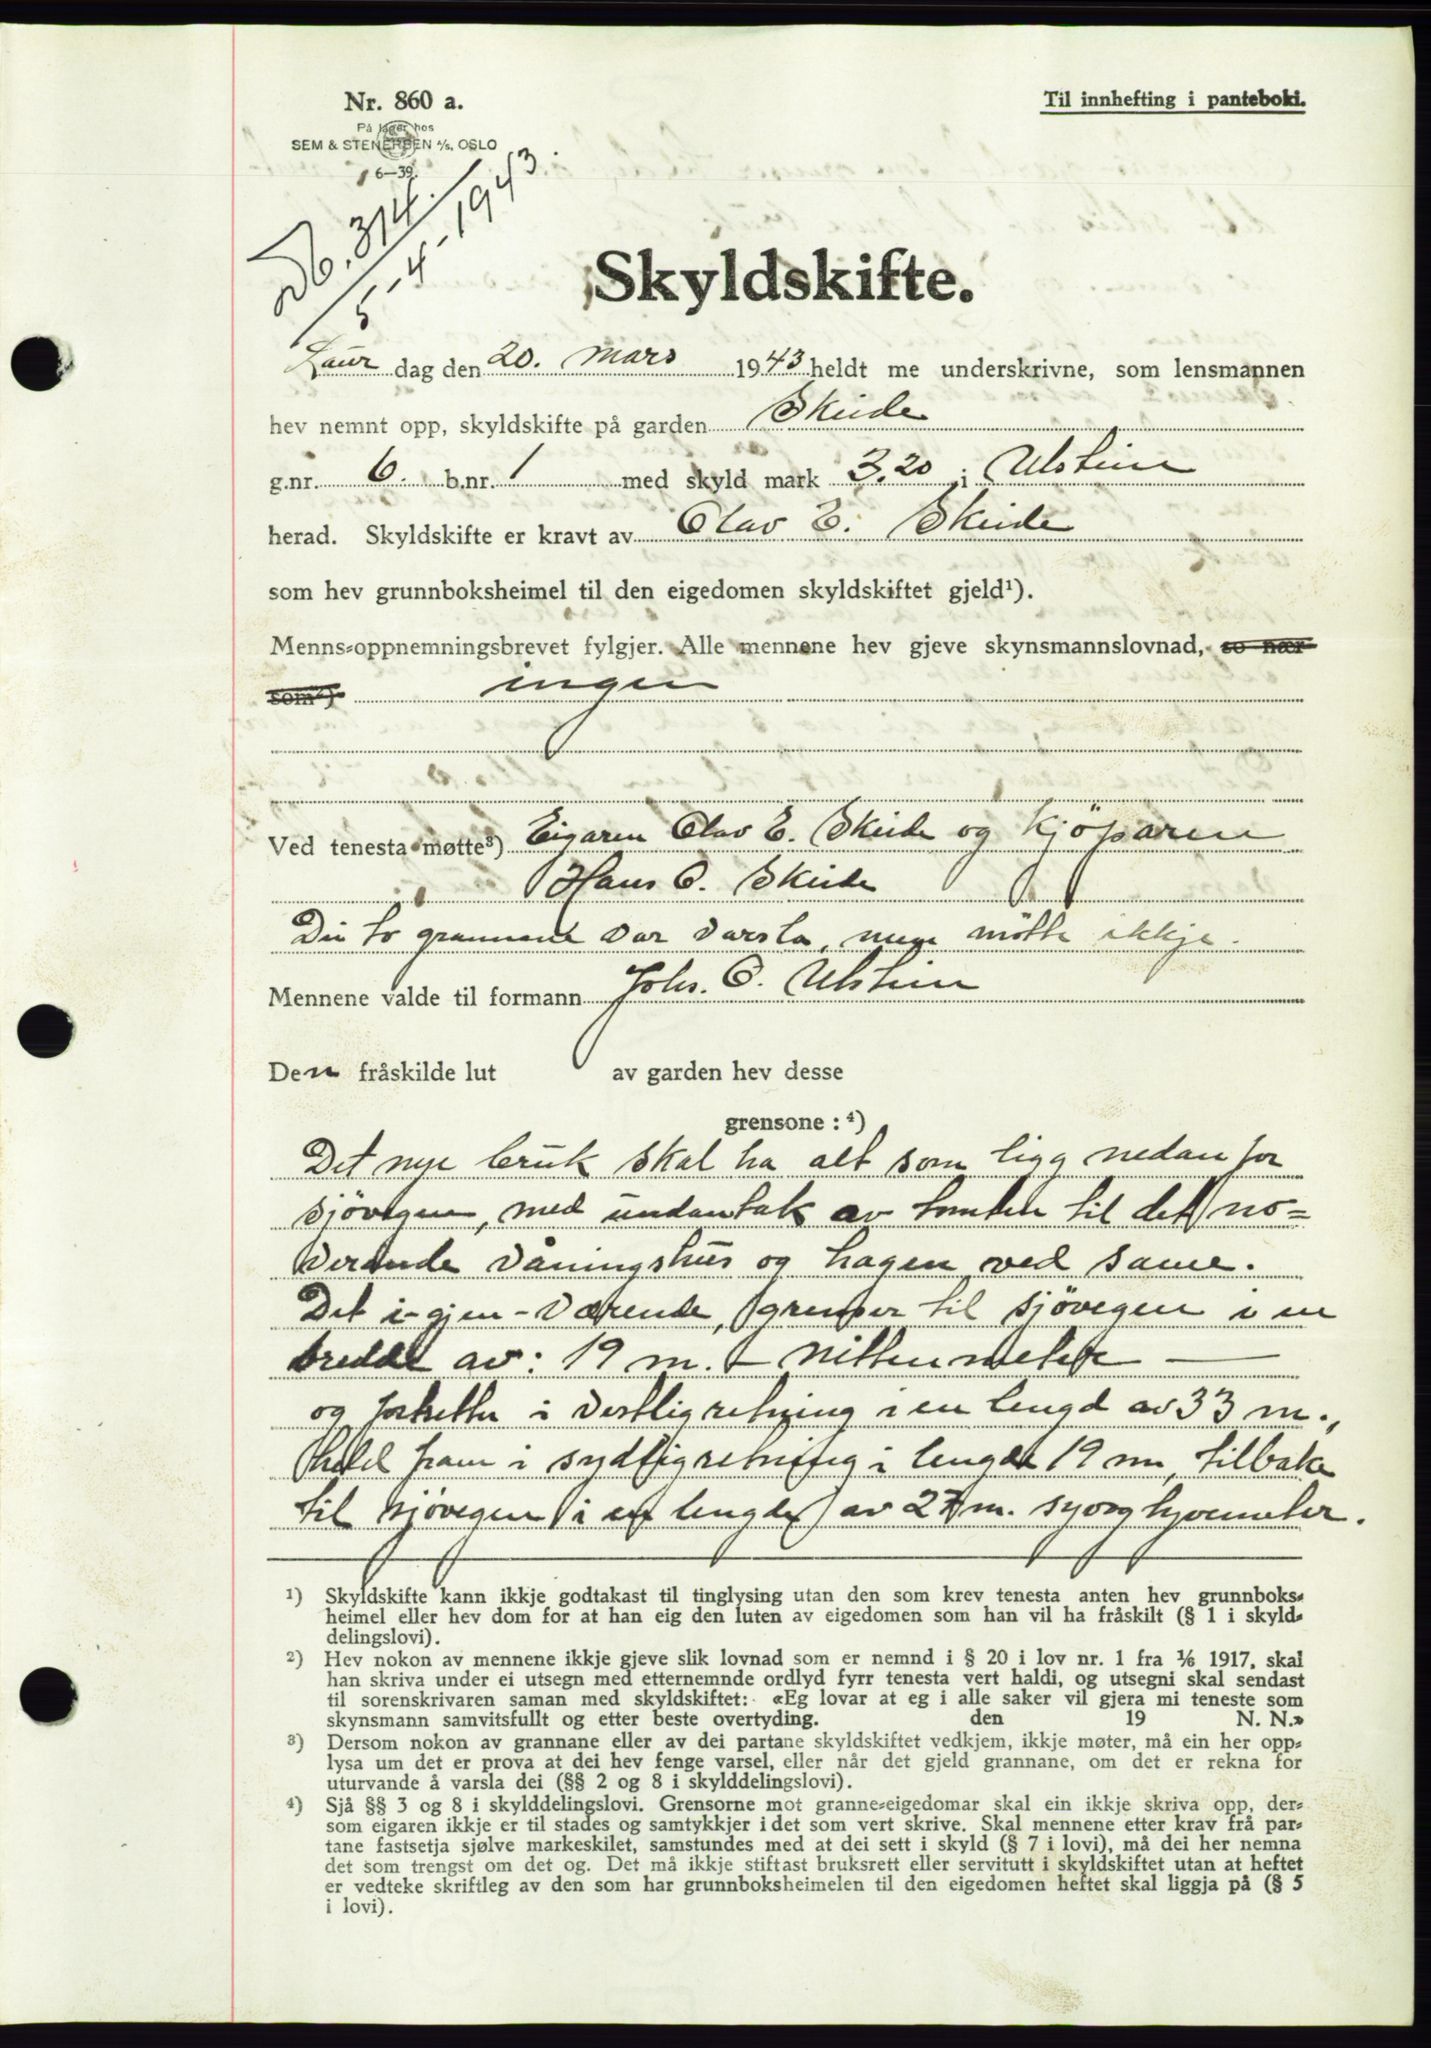 Nr. 860 a.
Til innhefting i panteboki.
På lager hos
SEM & STENERSEN A/S, OSLO
6—39.
Nb. 314.
5-4-1943.
Skyldskifte.
Laur dag den 20. mars 1943 heldt me underskrivne, som lensmannen
hev nemnt opp, skyldskifte på garden Skeide
g.nr. 6. b.nr. 1 med skyld mark 3.20 i Ulstein
herad. Skyldskifte er kravt av Olav E. Skeide
som hev grunnboksheimel til den eigedomen skyldskiftet gjeld¹).
Menns-oppnemningsbrevet fylgjer. Alle mennene hev gjeve skynsmannslovnad, so nær
som²) ingen
Ved tenesta møtte³) Eigaren Olav E. Skeide og kjöparen
Hans O. Skeide
Dei to grannane var varsla, men mötte ikkje.
Mennene valde til formann Johs. O. Ulstein
Den fråskilde lut av garden hev desse
grensone : ⁴)
Det nye bruk skal ha alt som ligg nedanfor
sjövegen, med undantak av tomten til det no=
verande våningshus og hagen ved same.
Det i-gjen-værende, grenser til sjövegen i en
bredde av: 19 m. — nitten meter —
og fortsetter i vestlig retning i en lengd av 33 m.,
held fram i sydlig retning i lengde 19 m, tilbake
til sjövegen i en lengde av 27 m. syvogtyvemeter.
¹) Skyldskifte kann ikkje godtakast til tinglysing utan den som krev tenesta anten hev grunnboks-
heimel eller hev dom for at han eig den luten av eigedomen som han vil ha fråskilt (§ 1 i skyld-
delingslovi).
²) Hev nokon av mennene ikkje gjeve slik lovnad som er nemnd i § 20 i lov nr. 1 fra ¹/₆ 1917, skal
han skriva under ei utsegn med etternemnde ordlyd fyrr tenesta vert haldi, og utsegni skal sendast
til sorenskrivaren saman med skyldskiftet: «Eg lovar at eg i alle saker vil gjera mi teneste som
skynsmann samvitsfullt og etter beste overtyding. den 19 N. N.»
³) Dersom nokon av grannane eller av dei partane skyldskiftet vedkjem, ikkje møter, må ein her opp-
lysa um det er prova at dei hev fenge varsel, eller når det gjeld grannane, om det er rekna for
uturvande å varsla dei (§§ 2 og 8 i skylddelingslovi).
⁴) Sjå §§ 3 og 8 i skylddelingslovi. Grensorne mot granne-eigedomar skal ein ikkje skriva opp, der-
som eigaren ikkje er til stades og samtykkjer i det som vert skrive. Skal mennene etter krav frå par-
tane fastsetja sjølve markeskilet, samstundes med at dei sett i skyld (§ 7 i lovi), må dei her nemna
det som trengst om det og. Det må ikkje stiftast bruksrett eller servitutt i skyldskiftet utan at heftet
er vedteke skriftleg av den som har grunnboksheimelen til den eigedomen heftet skal liggja på (§ 5
i lovi).